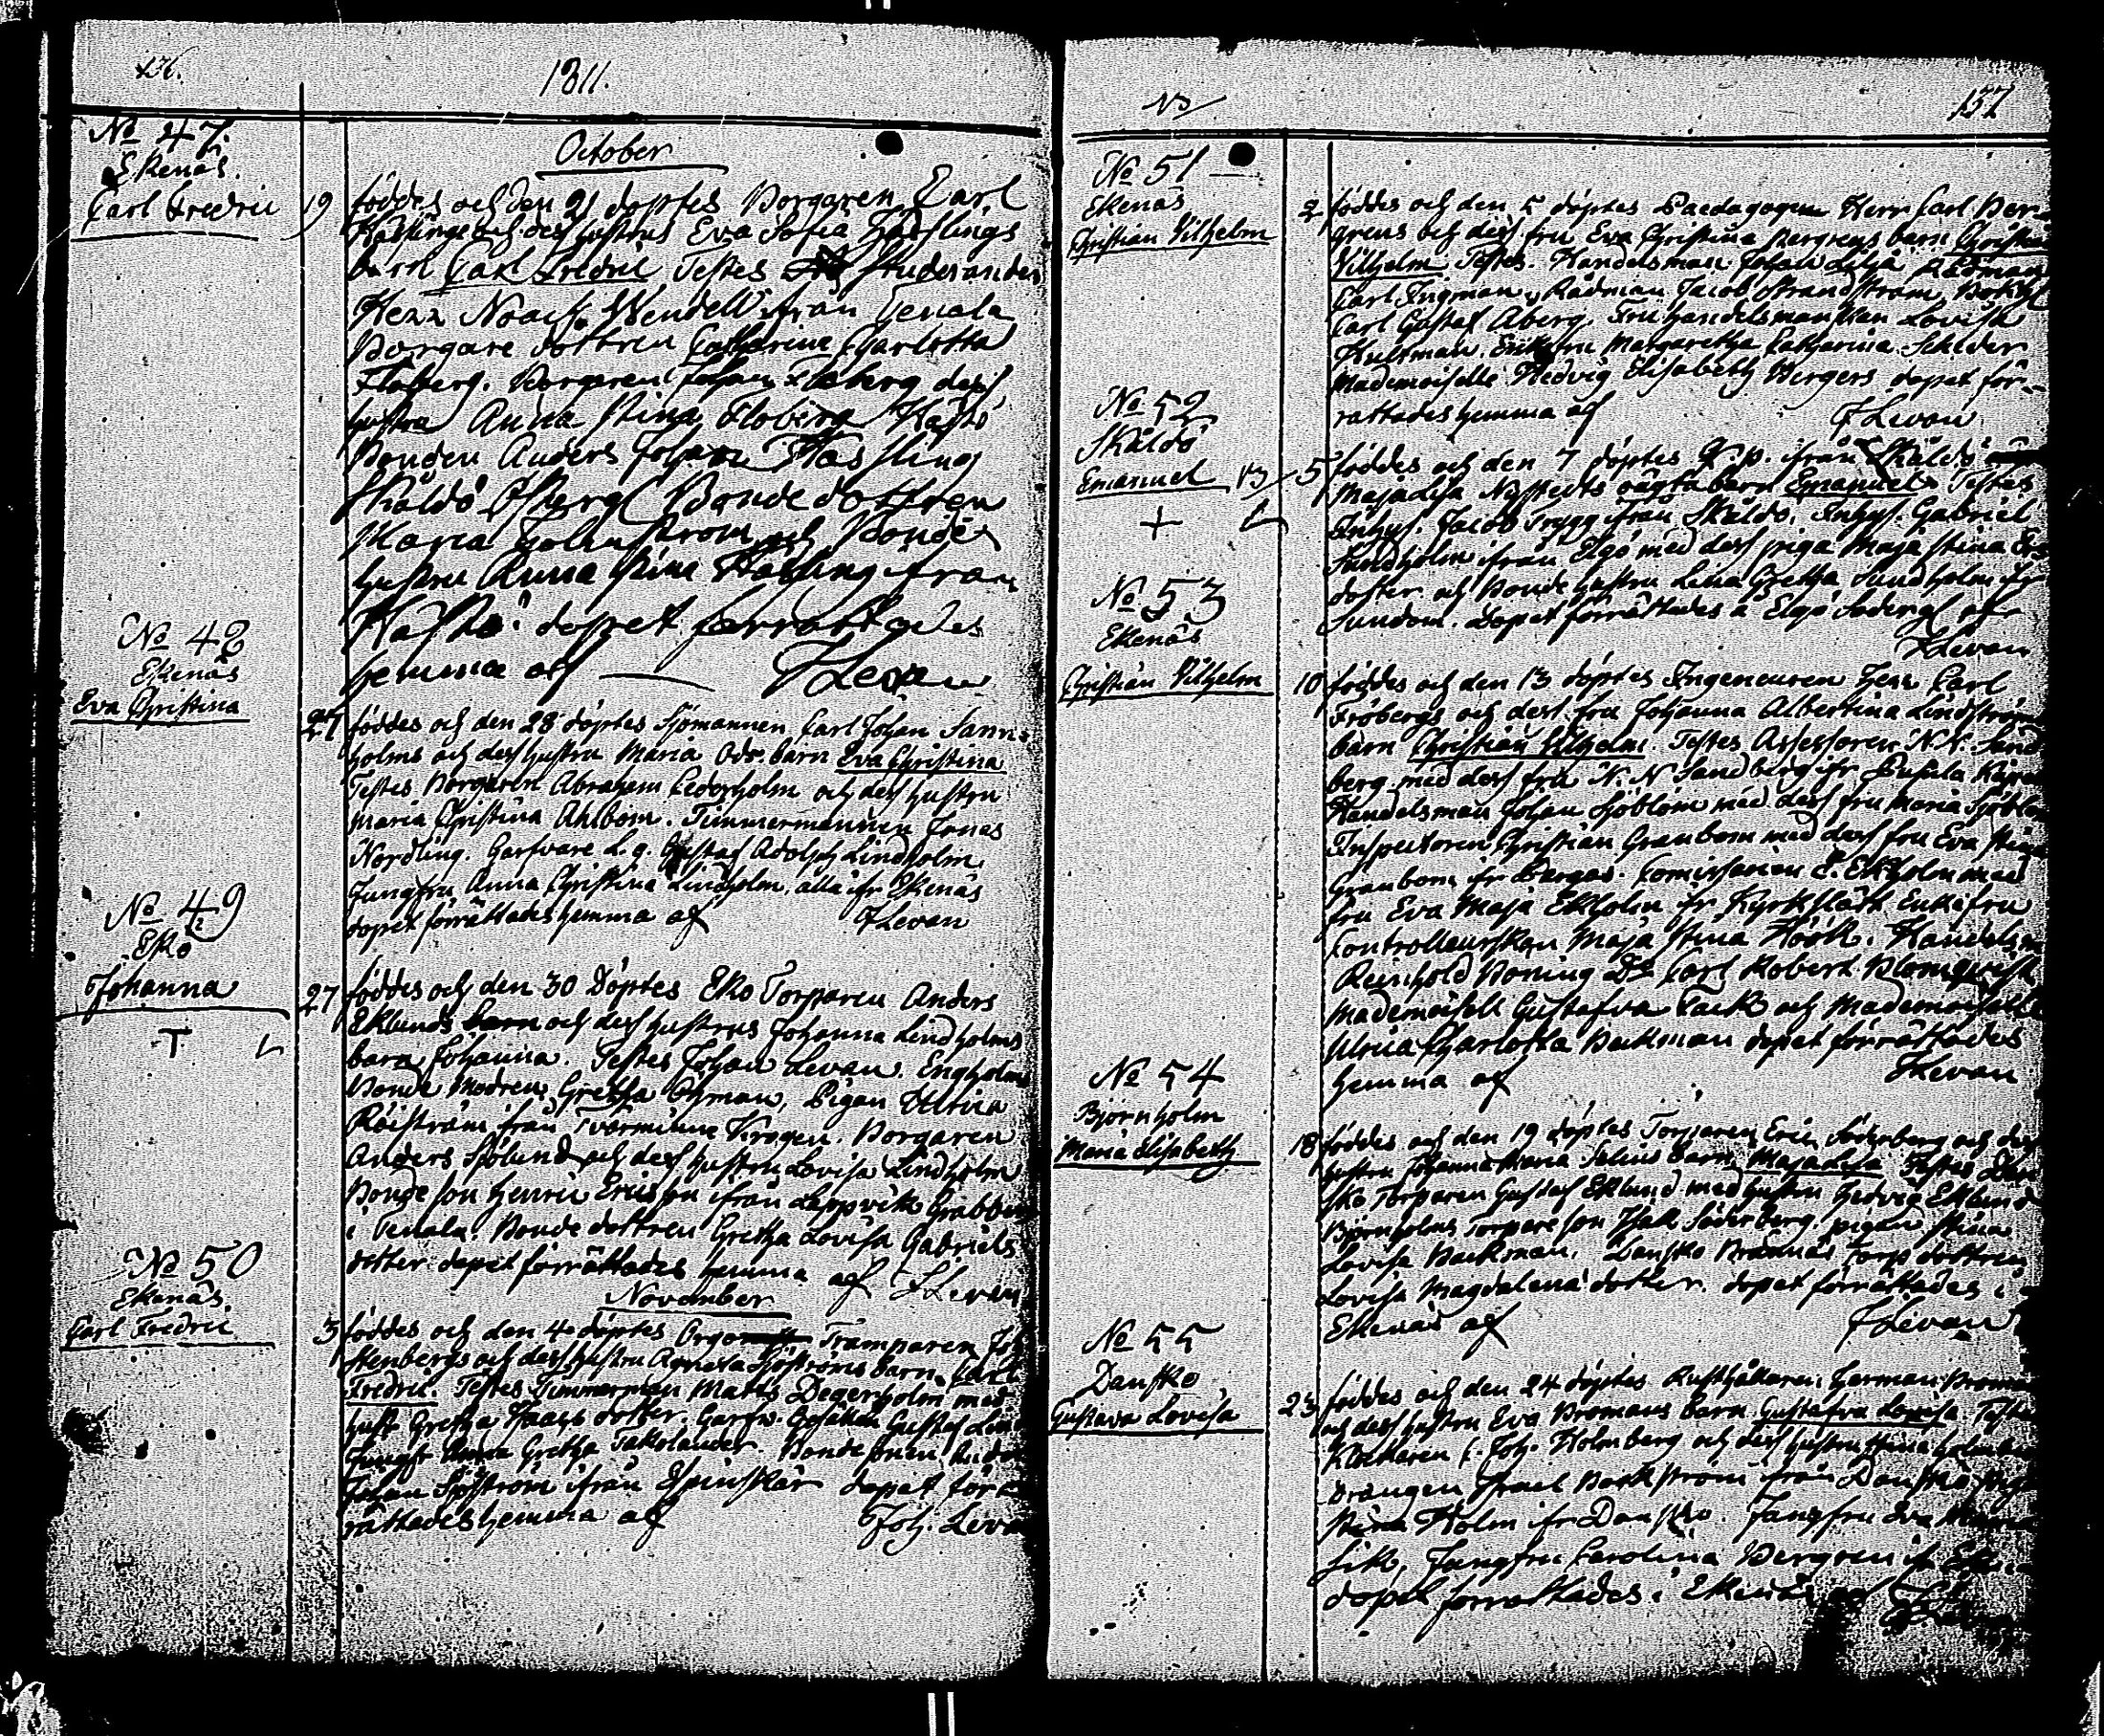 136.
1811.
No 47.
Ekenäs.
Carl Fredric
October
19 föddes och den 21 döptes Borgaren Carl
Hästings och dess hustrus Eva Sofia Hästlings
barn Carl Fredric Testes Studeranden
Herr Noach Wendell ifrån Tenala
Borgare dottren Catharine Charlotta
Floberg. Borgaren Johan Floberg dess
hustru Anna Stina Floberg Hästö
Bonden Anders Johan Hästling
Skåldö Bonde dottren
Maria Holmström och Bonde
hustru Anna Stina Hästling ifrån
Hästö. dopet förrättades
hemma af JLevan
No 48
Ekenäs
Eva Christina
27 föddes och den 28 döptes Sjömannen Carl Johan Sann-
holms och dess hustru Maria barn Eva Christina
Testes Borgaren Abraham Cederholm och dess hustru
Maria Christina Ahlbom. Timmermannen Jonas
Nordling. Garfvare L.g. Gustaf Adolph Lindholm,
Jungfru Anna Christina Lindholm, alla ifr Ekenäs
dopet förrättades hemma af JLevan
No 49
Ekö
Johanna
27 föddes och den 30 Döptes Ekö Torparen Anders
Eklunds och dess hustrus Johanna Lindholms
barn Johanna. Testes Johan Levan. Engholm
Bonde Modren Gretha Öhman, Pigan Ulrica
Röiström från Tvärminne Krogen. Borgaren
Anders Sjölund och dess hustru Lovisa Lindholm
Bonde son Henric Ericsson ifrån Lappvik Grabben
i Tenala. Bonde dottren Gretha Lovisa Gabriels
dotter dopet förrättades hemma af JLevan
November
No 50
Ekenäs
Carl Fredric
3 föddes och den 4 döptes Tramparen Joh
Stenbergs och dess hustru Agneta Sjöströms barn Carl
Fredric. Testes Timmerman Matts Degerholm med
hust Gretha Haars dotter. Garfv. Gesällen Gustaf Lind
Jungfr Gretha Takolander. Bonde sonen Anders
Johan Sjöström ifrån Espinskär dopet för-
rättades hemma af Joh. Leva
157
No 51
Ekenäs
Christian Vilhelm
2 föddes och den 5 döptes Paedagogen Herr Carl Ber-
grens och dess fru Eva Christina Bergrens barn Christian
Vilhelm. Testes. Handelsman Johan Lilja Rådman
Carl Ingman, Rådman Jacob Strandström,
Carl Gustaf Åberg. Fru handelsmanskan Lovisa
Hultman. Margaretha Catharina
Mademoiselle Hedvig Elisabeth Bergers dopet för-
rättades hemma af JLevan
No 52
Skåldö
Emanuel
5 föddes och den 7 döptes ifrån Skåldö
Majalisa Nystedts oägta barn Emanuel Testes
Inhys. Jacob Trygg ifrån Skåldö, Inhys. Gabriel
Sundholm ifrån Elgö med dess piga Maja Stina
dotter och Bonde hustru Lena Gretha Sundholm ifr
Sundom. Dopet förrättades å Elgö af
JLevan
No 53
Ekenäs
Christian Vilhelm
10 föddes och den 13 döptes Ingeneuren Herr Carl
Fröbergs och dess fru Johanna Albertina Lindström
barn Christian Vilhelm. Testes Assessoren N.N. Sand
berg med dess fru N.N Sandberg ifr
Handelsman Johan Sjöblom med dess fru Maria Sjöblom
Inspectoren Christian Granbom med dess fru Eva Stina
Granbom ifr Comissarien Ekholm med
fru Eva Maja Ekholm ifr Kyrkslätt Enkefru
Controlleurskan Maja Stina Höök. Handelsm
Reinhold Boning Do Carl Robert Blomqvist
Mademoisell Gustafva Falk och Mademoiselle
Ulrica Charlotta Backman dopet förrättades
hemma af JLevan
No 54
Björnholm
Maria Elisabeth
18 föddes och den 19 döptes Torparen Eric Söderberg och dess
hustru Johanna Maria barn Majalisa Testes Dan
skö Torparen Gustaf Eklund med hustru Hedvig Eklund
Björnholms Torpare son Isak Söderberg. pigan Stina
Lovisa Backman. Danskö Torp dottren
Lovisa Magdalena dotter. dopet förrättades i
Ekenäs af JLevan
No 55
Danskö
Gustava Lovisa
23 föddes och den 24 döptes Rusthållaren Herman Broman
och dess hustru Eva Bromans barn Gustafva Lovisa. Testes
Klockaren C. Joh. Holmberg och dess hustru Stina Holmberg
Drängen Israel Backström ifrån Danskö
Stina Holm ifr Danskö. Jungfru Eva
Jungfru Carolina Bergren
dopet förrattades i Ekenäs